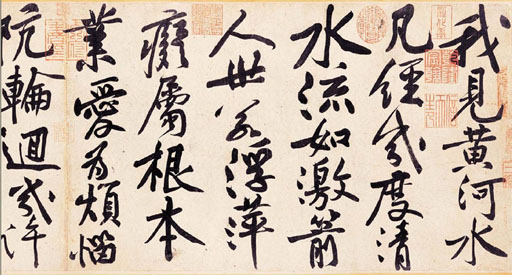 我見黃河水
凡經幾度清
水流如激箭
人世若浮萍
癡屬根本
業愛為煩惱
阬輪迴幾許